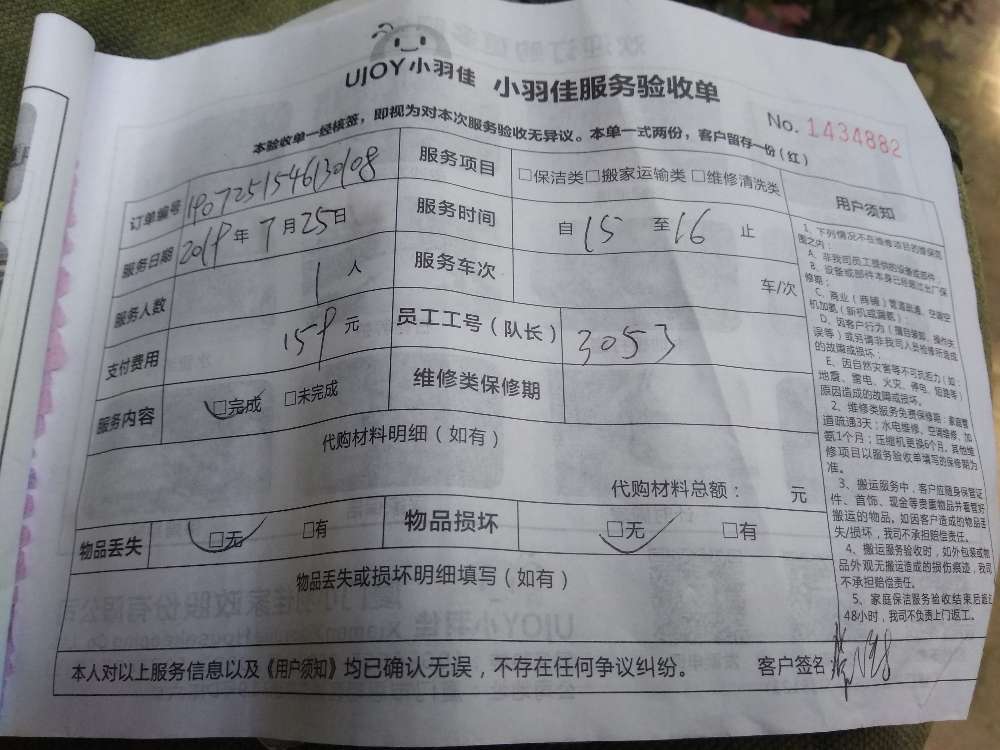 UJOY小羽佳 小羽佳服务验收单
本验收单一经核签，即视为对本次服务验收无异议。本单一式两份，客户留存一份（红）
No. 1434882
订单编号 服务项目 □保洁类□搬家运输类 □维修清洗类
服务日期 2019年7月25日 服务时间 自15至16止
服务人数 1人 服务车次 车/次
支付费用 159元 员工工号（队长） 3053
服务内容 □完成 □未完成 维修类保修期
代购材料明细（如有）
代购材料总额： 元
物品丢失 □无 □有 物品损坏 □无 □有
物品丢失或损坏明细填写（如有）
本人对以上服务信息以及《用户须知》均已确认无误，不存在任何争议纠纷。 客户签名：
用户须知
1、下列情况不在维修项目的维保范
围之内：
A、非我司员工提供的设备或部件；
B、设备或部件本身已经超过出厂保
修期；
C、商业（商铺）管道疏通、空调空
机加氨（新机或漏氨）；
D、因客户行为（擅自装卸、操作失
误等）或另请非我司人员检修所造成
的故障或损坏；
E、因自然灾害等不可抗拒力（如：
地震、雷电、火灾、停电、短路等）
原因造成的故障或损坏。
2、维修类服务免费保修期：家庭管
道疏通3天；水电维修、空调维修、加
氨1个月；压缩机更换6个月。其他维
修项目以服务验收单填写的保修期为
准。
3、搬运服务中，客户应随身保管证
件、首饰、现金等贵重物品并看管好
搬运的物品。如因客户造成的物品丢
失/损坏，我司不承担赔偿责任。
4、搬运服务验收时，如外包装或物
品外观无搬运造成的损伤痕迹，我司
不承担赔偿责任。
5、家庭保洁服务验收结束后超过
48小时，我司不负责上门返工。